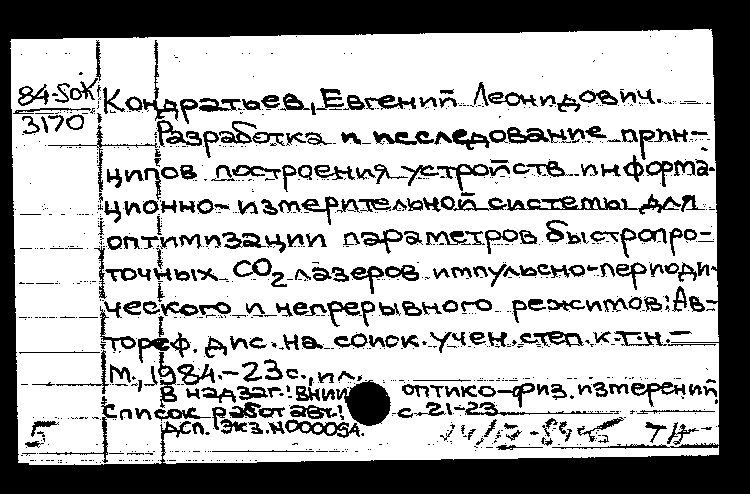 84-5ок
3170
Кондратьев, Евгений Леонидович.
Разработка и исследование прин-
ципов построения устройств информа-
ционно-измерительной системы для
оптимизации параметров быстропро-
точных CO2 лазеров импульсно-периоди-
ческого и непрерывного режимов: Ав-
тореф. дис. на соиск. учен. степ. к.т.н. –
М., 1984. – 23 с., ил.
В надзаг.: ВНИИ оптико-физ. измерений
Список работ авт.: с. 21-23
ДСП. Экз. N 00005А.
5